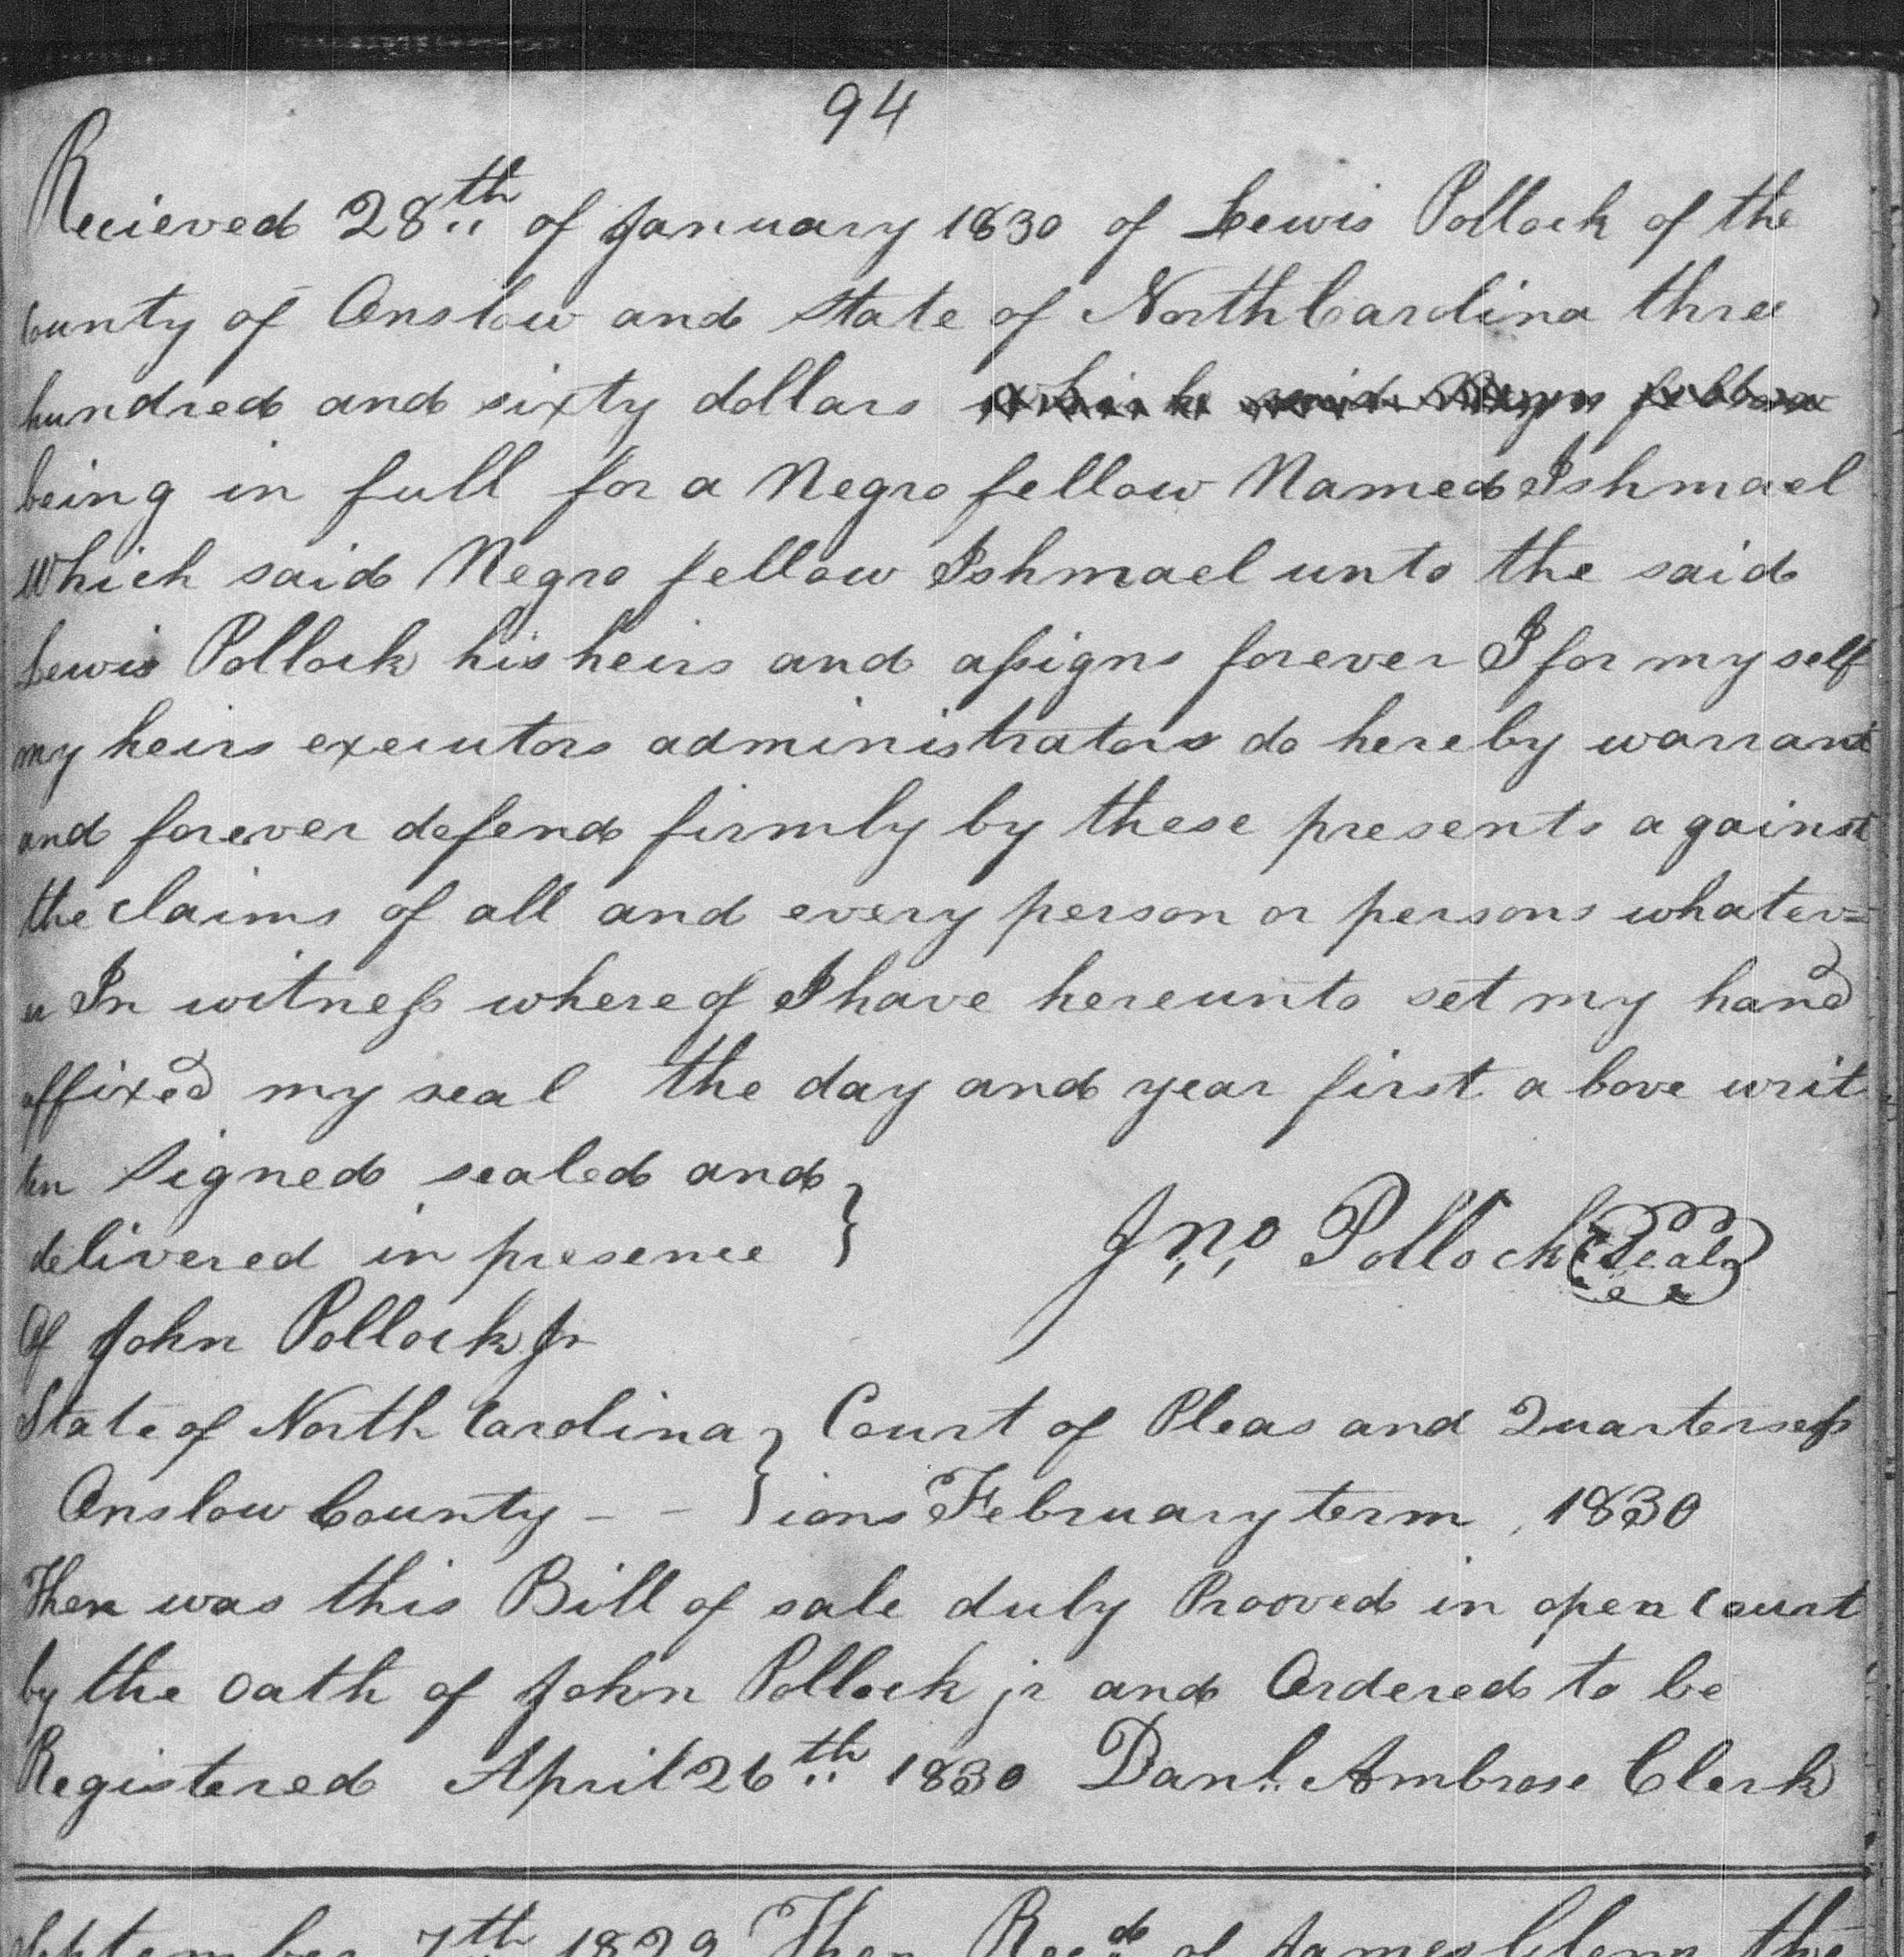 94
Recieved 28th of January 1830 of Lewis Pollock of the
County of Onslow and State of North Carolina three
hundred and sixty dollars which said Negro fellow
being in full for a Negro fellow Named Ishmael
Which said Negro fellow Ishmael unto the said
Lewis Pollock his heirs and assigns forever I for my self
my heirs executors administrators do hereby warrant
and forever defend firmly by these presents against
the claims of all and every person or persons whatev=
er In witness where of I have hereunto set my hand
affixed my seal the day and year first above writ
ten Signed sealed and
delivered in presence
Jno Pollock Seal
Of John Pollock Jr
State of North Carolina } Court of Pleas and Quarter sess
Onslow County - - } ions February term 1830
Then was this Bill of sale duly Prooved in open Court
by the Oath of John Pollock jr and Ordered to be
Registered April 26th 1830 Danl. Ambrose Clerk
September 7th 1829 Then Recd of James Glenn the